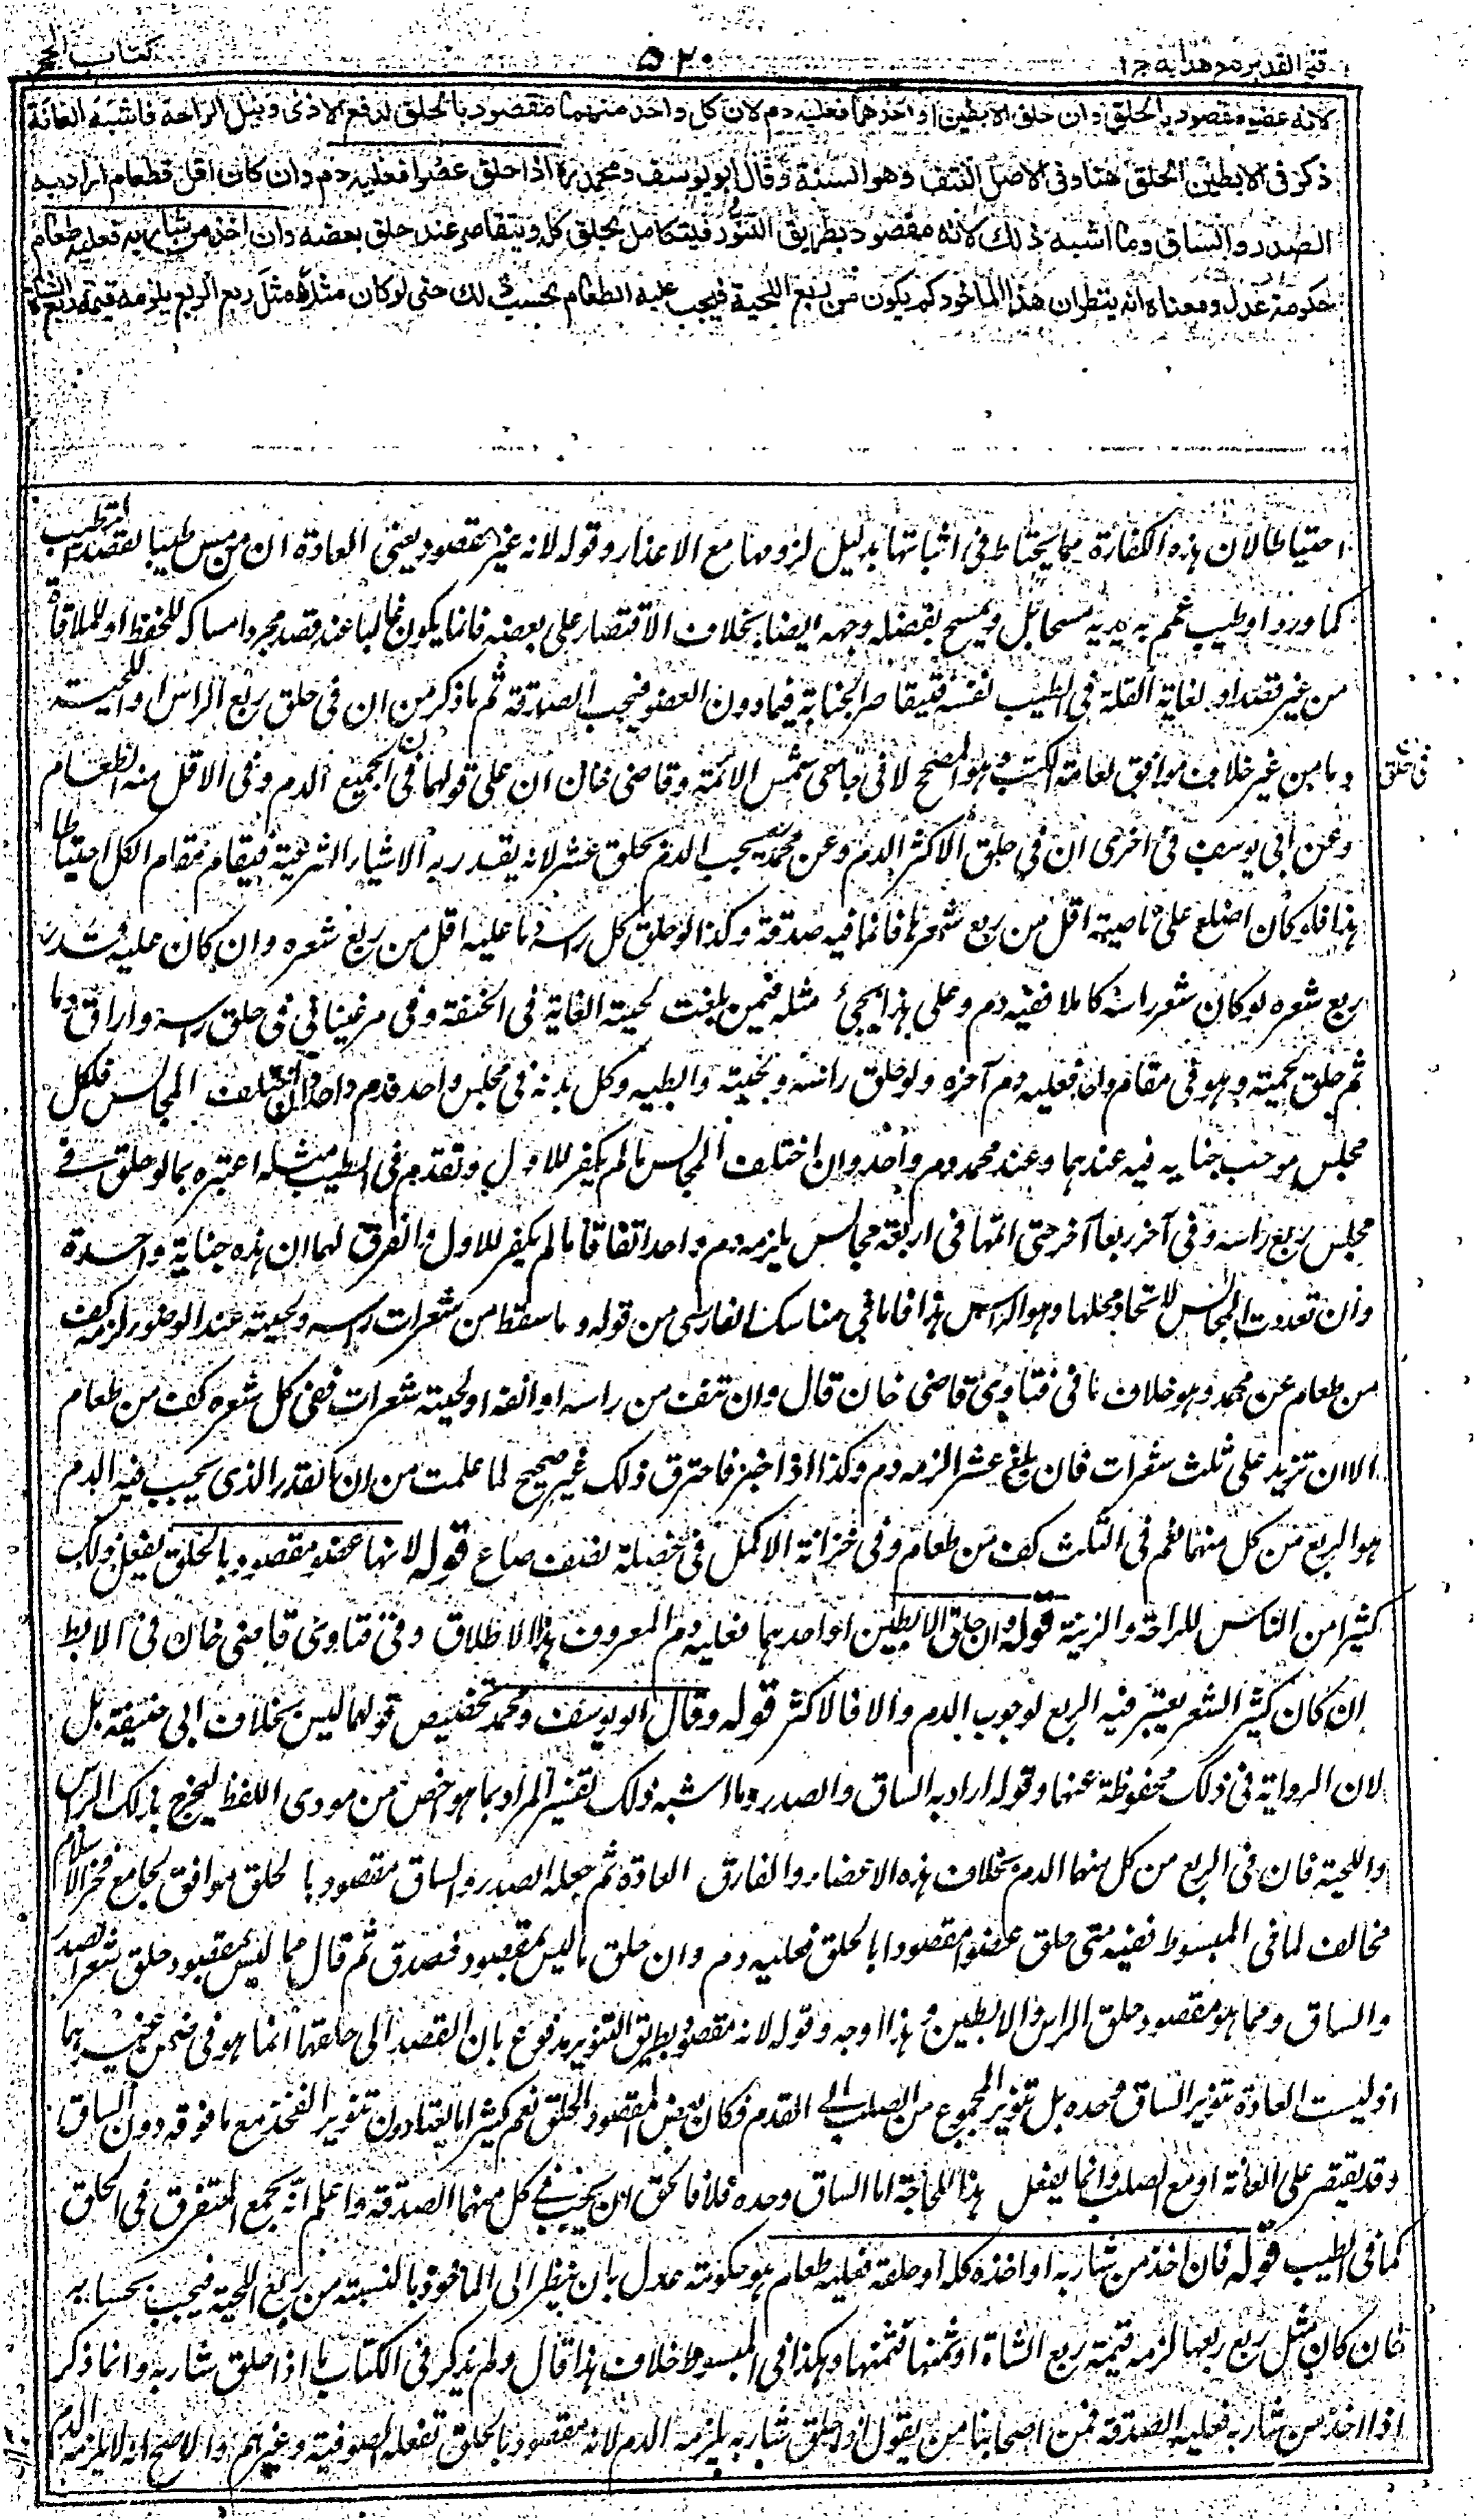 فتح القدير مع هدايه ج ا
٥٢٠
كتاب الحج
لانه عضو مقصود بالحلق وان حلق الابطين او احدهما فعليه دم لان كل واحد منهما مقصود بالحلق لدفع الاذى ونيل الراحة فاشبه العانة
ذكر فى الابطين الحلق هنا وفى الاصل النتف وهو السنة وقال ابو يوسف ومحمد اذا حلق عضوا فعليه دم وان كان اقل فطعام اراد به
الصدر والساق وما اشبه ذلك لانه مقصود بطريق التنور فيتكامل بحلق كله ويتقاصر عند حلق بعضه وان اخذ من شاربه فعليه طعام
حكومة عدل ومعناه انه ينظر ان هذا الماخوذ كم يكون من ربع اللحية فيجب عليه الطعام بحسب ذلك حتى لو كان مثلا مثل ربع الربع يلزمه قيمة ربع الشاة
احتياطا لان هذه الكفارة مما يحتاط فى اثباتها بدليل لزومها مع الاعذار وقوله لانه غير مقصود يعنى العادة ان من مس طيبا لقصد التطيب
كما ورد او طيب عمم به يديه مسحا بل ويمسح بفضله وجهه ايضا بخلاف الاقتصار على بعضه فانما يكون غالبا عند قصد مجرد امساكه للحفظ او للملاقاة
من غير قصد او لغاية القلة فى الطيب نفسه فتقاصر الجناية فيما دون العضو فتجب الصدقة ثم ما ذكر من ان فى حلق ربع الراس او اللحية
دما من غير خلاف موافق لعامة الكتب وهو الصحيح لا فى جامعى شمس الائمة وقاضى خان ان على قولهما فى الجميع الدم وفى الاقل منه الطعام
فى حلق
وعن ابى يوسف فى اخرى ان فى حلق الاكثر الدم وعن محمد يجب الدم بحلق عشر لانه يقدر به الاشياء الشرعية فيقام مقام الكل احتياطا
هذا فلو كان اصلع على ناصيته اقل من ربع شعرها فانما فيه صدقة وكذا لو حلق كل راسه وما عليه اقل من ربع شعره وان كان عليه قدر
ربع شعره لو كان شعر راسه كاملا ففيه دم وعلى هذا يجئ مثله فيمن بلغت لحيته الغاية فى الخفة وفى مرغينانى فى حلق راسه واراق دما
ثم حلق لحيته وهو فى مقام واحد فعليه دم آخره ولو حلق راسه ولحيته وابطيه وكل بدنه فى مجلس واحد فدم واحد وان اختلفت المجالس فلكل
مجلس موجب جنايه فيه عندهما وعند محمد دم واحد وان اختلفت المجالس ما لم يكفر للاول وتقدم فى الطيب مثله اعتبره بما لو حلق فى
مجلس ربع راسه وفى آخر ربعا آخر حتى اتمها فى اربعة مجالس يلزمه دم واحد اتفاقا ما لم يكفر للاول والفرق لهما ان هذه جناية واحدة
وان تعددت المجالس لاتحاد محلها وهو الراس هذا فاما فى مناسك الفارسى من قوله وما سقط من شعرات راسه ولحيته عند الوضوء لزمه كف
من طعام عن محمد وهو خلاف ما فى فتاوى قاضى خان قال وان نتف من راسه او انفه او لحيته شعرات ففى كل شعره كف من طعام
الا ان تزيد على ثلث شعرات فان بلغ عشرا لزمه دم وكذا اذا خبز فاحترق ذلك غير صحيح لما علمت من ان القدر الذى يجب فيه الدم
هو الربع من كل منهما نعم فى الثلث كف من طعام وفى خزانة الاكمل فى خصلة نصف صاع قوله لانها عضو مقصود بالحلق يفعل ذلك
كثير من الناس للراحة والزينة قوله وان حلق الابطين او احدهما فعليه دم المعروف هذا الاطلاق وفى فتاوى قاضى خان فى الابط
ان كان كثير الشعر يعتبر فيه الربع لوجوب الدم والا فالاكثر قوله وقال ابو يوسف ومحمد تخصيص قولهما ليس بخلاف ابى حنيفة بل
لان الرواية فى ذلك محفوظة عنهما وقوله اراد به الساق والصدر وما اشبه ذلك تفسير المراد بما هو اخص من مودى اللفظ ليخرج بذلك الراس
واللحية فان فى الربع من كل منهما الدم بخلاف هذه الاعضاء والفارق العادة ثم جعله الصدر والساق مقصودا بالحلق موافق لجامع فخر الاسلام
مخالف لما فى المبسوط ففيه متى حلق عضوا مقصودا بالحلق فعليه دم وان حلق ما ليس بمقصود فصدقة ثم قال مما ليس بمقصود حلق شعر الصدر
والساق ومما هو مقصود حلق الراس والابطين وهذا اوجه وقوله لانه مقصود بطريق التنوير مدفوع بان القصد الى حلقهما انما هو فى ضمن غيرهما
اذ ليست العادة تنوير الساق وحده بل تنوير المجموع من الصلب الى القدم فكان بعض المقصود بالحلق نعم كثيرا ما يعتادون تنوير الفخذ مع ما فوقه دون الساق
وقد يقتصر على العانة او مع الصلب وانما يفعل هذا للحاجة اما الساق وحده فلا فالحق ان يجب فى كل منهما الصدقة واعلم انه يجمع المتفرق فى الحلق
كما فى الطيب قوله فان اخذ من شاربه او اخذه كله او حلقه فعليه طعام هو حكومة عدل بان ينظر الى الماخوذ بالنسبة من ربع اللحية فيجب بحسابه
فان كان مثل ربع ربعها لزمه قيمة ربع الشاة او ثمنها فثمنها وهكذا فى المبسوط خلاف هذا قال ولم يذكر فى الكتاب ما اذا حلق شاربه وانما ذكر
اذا اخذ من شاربه فعليه الصدقة فمن اصحابنا من يقول اذا حلق شاربه يلزمه الدم لانه مقصود بالحلق تفعله الصوفية وغيرهم والاصح انه لا يلزمه الدم